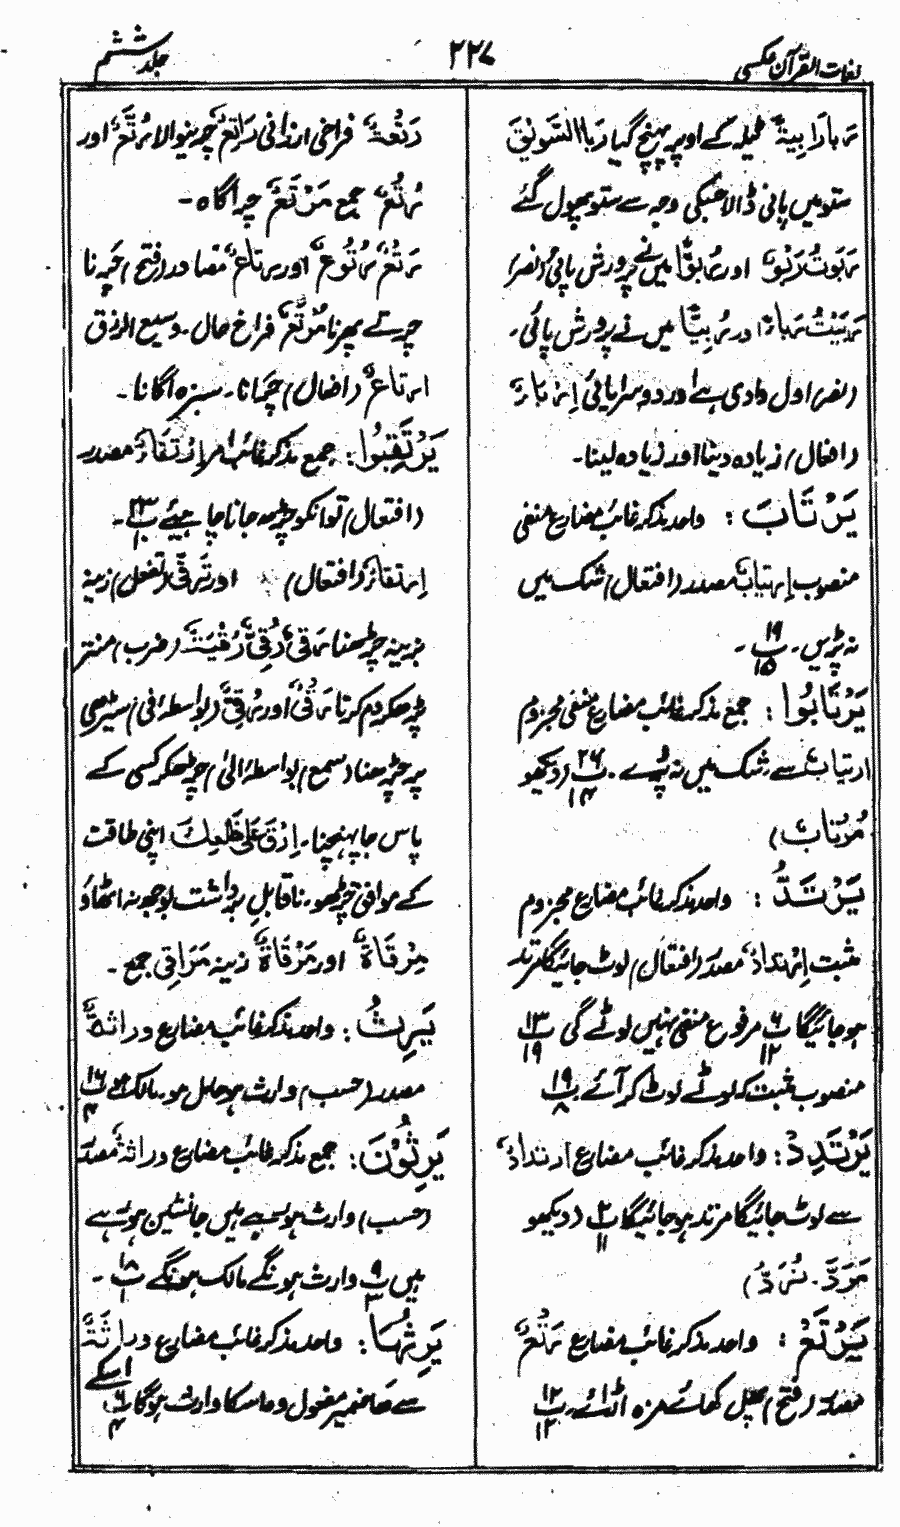 لغات القرآن عکسی
۲۲۷
جلد ششم
رَبا رَابِیَۃً ٹیلہ کے اوپر پہنچ گیا رَبا السَّوِیْقَ
ستو میں پانی ڈالا جس کی وجہ سے ستو پھول گئے
رَبَوتُ رُبُوًّا اور میں نے پرورش پائی (نصر)
رَبَیْتُ رَبَاءً اور رُبِیًّا میں نے پرورش پائی۔
(نصر) اول وادی ہے اور دوسرا یائی اِرْبَاءٌ
(افعال) زیادہ دینا اور زیادہ لینا۔
یَرْتَابَ : واحد مذکر غائب مضارع منفی
منصوب اِرْتِیَابٌ مصدر (افتعال) شک میں
نہ پڑیں۔ ۱۹/۱۵ ۔
یَرْتَابُوا : جمع مذکر غائب مضارع منفی مجزوم
ارتیابٌ سے۔ شک میں نہ پڑے۔ پ ۲۶/۱۴ (دیکھو
مُرْتَابٌ)
یَرْتَدَّ : واحد مذکر غائب مضارع مجزوم
مثبت اِرْتِدَادٌ مصدر (افتعال) لوٹ جائیگا مرتد
ہو جائیگا پ ۶/۱۲ مرفوع منفی نہیں لوٹے گی پ ۱۳/۱۹
منصوب مثبت کہ لوٹے لوٹ کر آئے پ ۱۹/۸
یَرْتَدِدْ : واحد مذکر غائب مضارع ارتدادٌ
سے لوٹ جائیگا مرتد ہو جائیگا پ ۲/۱۱ (دیکھو
مَرَدَّ۔ نُرَدُّ)
یَرْتَعْ : واحد مذکر غائب مضارع رَتْعٌ
مصدر (فتح) پھل کھائے مزہ اڑائے پ ۱۲/۱۲
رَتْعَۃٌ فراخی ارزانی رَاتِعٌ چرنیوالا رُتَّعٌ اور
رُتُعٌ جمع مَرْتَعٌ چراگاہ ۔
رَتْعٌ رُتُوْعٌ اور رِتَاعٌ مصادر (فتح) چَرنا
چرتے پھرنا مُرَتَّعٌ فراخ حال۔ وسیع الرزق
ارتاعٌ (افعال) چَرانا۔ سبزہ اُگانا ۔
یَرْتَقُوا : جمع مذکر غائب امر اِرْتِقَاءٌ مصدر
(افتعال) تو انکو چڑھ جانا چاہیئے پ ۲۳/۱۰ ۔
اِرتقاءٌ (افتعال) اور تَرَقِّی (تفعل) زینہ
بزینہ چڑھنا رَقِیَ رُقِیًّا رُقْیَۃً (ضرب) منتر
پڑھ کر دم کرنا رَقْیٌ اور رُقِیٌّ (بواسطہ فی) سیڑھی
پر چڑھنا (سمع) بواسطہ الیٰ) چڑھکر کسی کے
پاس جا پہنچنا۔ اِرْقَ عَلیٰ ظَلْعِکَ اپنی طاقت
کے موافق چڑھو۔ ناقابلِ برداشت بوجھ نہ اٹھاؤ
مِرْقَاۃٌ اور مَرْقَاۃٌ زینہ مَرَاقِی جمع ۔
یَرِثُ : واحد مذکر غائب مضارع وراثۃٌ
مصدر (حسب) وارث ہو حاصل ہو۔ مالک ہو پ ۱۶/۴
یَرِثُوْنَ : جمع مذکر غائب مضارع وراثۃٌ مصدر
(حسب) وارث ہو رہے ہیں جانشین ہو رہے
ہیں پ ۹ وارث ہونگے مالک ہونگے پ ۱۸/۱ ۔
یَرِثُہَا : واحد مذکر غائب مضارع وراثۃٌ
سے ھا ضمیر مفعول وہ اسکا وارث ہوگا پ ۶/۴
اسکے